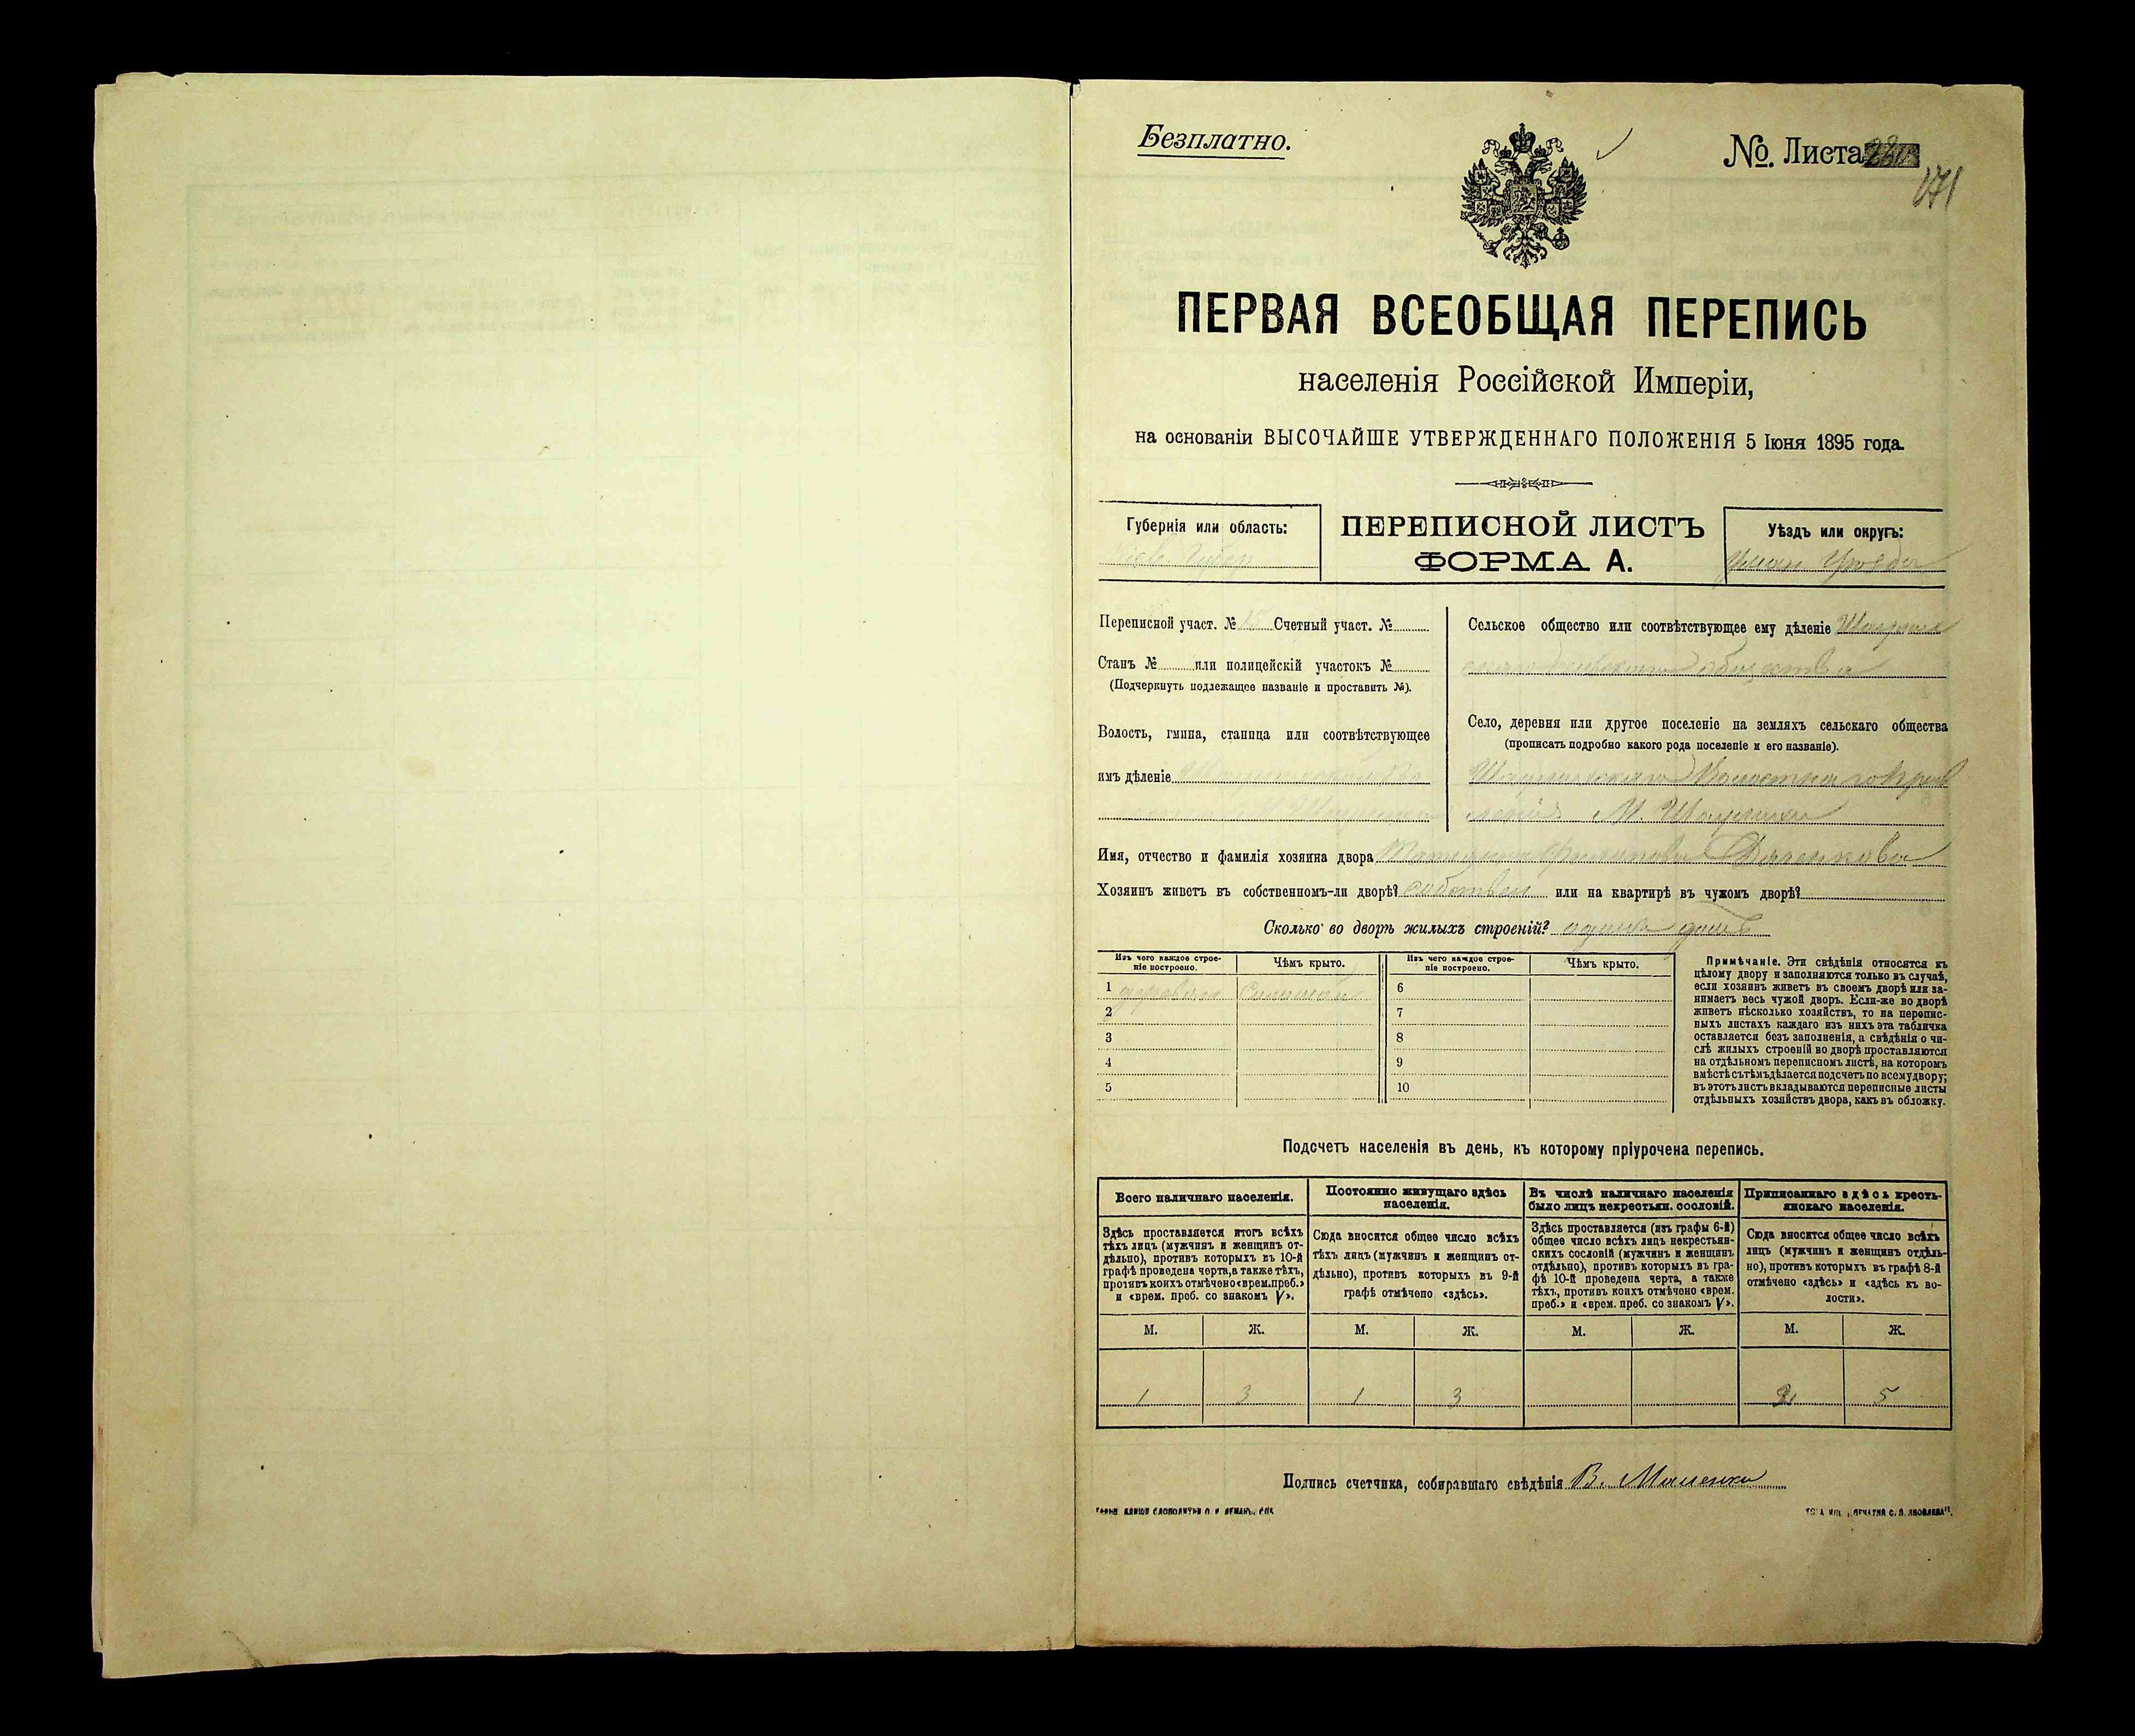 Безплатно.
№. Листа
171
ПЕРВАЯ ВСЕОБЩАЯ ПЕРЕПИСЬ
населенія Россійской Имперіи,
на основаніи ВЫСОЧАЙШЕ УТВЕРЖДЕННАГО ПОЛОЖЕНІЯ 5 Іюня 1895 года.
Губернія или область:
Кіев Губер
ПЕРЕПИСНОЙ ЛИСТЪ
ФОРМА А.
Уѣздъ или округъ:
Уман Уѣзда
Переписной участ. № 15 Счетный участ. №
Станъ № или полицейскій участокъ №
(Подчеркнуть подлежащее названіе и проставить №).
Волость, гмина, станица или соотвѣтствующее
имъ дѣленіе
Сельское общество или соотвѣтствующее ему дѣленіе
общества
Село, деревня или другое поселеніе на земляхъ сельскаго общества
(прописать подробно какого рода поселеніе и его названіе).
М.
Имя, отчество и фамилія хозяина двора
Хозяинъ живетъ въ собственномъ-ли дворѣ? собствен или на квартирѣ въ чужомъ дворѣ?
Сколько во дворѣ жилыхъ строеній? одинъ домъ
Изъ чего каждое строеніе построено. Чѣмъ крыто. Изъ чего каждое строеніе построено. Чѣмъ крыто.
1 дерева Соломой 6
2 7
3 8
4 9
5 10
Примѣчаніе. Эти свѣдѣнія относятся къ
цѣлому двору и заполняются только въ случаѣ,
если хозяинъ живетъ въ своемъ дворѣ или за-
нимаетъ весь чужой дворъ. Если-же во дворѣ
живетъ нѣсколько хозяйствъ, то на перепис-
ныхъ листахъ каждаго изъ нихъ эта табличка
оставляется безъ заполненія, а свѣдѣнія о чи-
слѣ жилыхъ строеній во дворѣ проставляются
на отдѣльномъ переписномъ листѣ, на которомъ
вмѣстѣ съ тѣмъ дѣлается подсчетъ по всему двору;
въ этотъ листъ вкладываются переписные листы
отдѣльныхъ хозяйствъ двора, какъ въ обложку.
Подсчетъ населенія въ день, къ которому пріурочена перепись.
Всего наличнаго населенія.
Здѣсь проставляется итогъ всѣхъ
тѣхъ лицъ (мужчинъ и женщинъ от-
дѣльно), противъ которыхъ въ 10-й
графѣ проведена черта, а также тѣхъ,
противъ коихъ отмѣчено «врем. преб.»
и «врем. преб. со знакомъ V».
Постоянно живущаго здѣсь
населенія.
Сюда вносится общее число всѣхъ
тѣхъ лицъ (мужчинъ и женщинъ от-
дѣльно), противъ которыхъ въ 9-й
графѣ отмѣчено «здѣсь».
Въ числѣ наличнаго населенія
было лицъ некрестьян. сословій.
Здѣсь проставляется (изъ графы 6-й)
общее число всѣхъ лицъ некрестьян-
скихъ сословій (мужчинъ и женщинъ
отдѣльно), противъ которыхъ въ гра-
фѣ 10-й проведена черта, а также
тѣхъ, противъ коихъ отмѣчено «врем.
преб.» и «врем. преб. со знакомъ V».
Приписаннаго здѣсь кресть-
янскаго населенія.
Сюда вносится общее число всѣхъ
лицъ (мужчинъ и женщинъ отдѣль-
но), противъ которыхъ въ графѣ 8-й
отмѣчено «здѣсь» и «здѣсь къ во-
лости».
М. Ж. М. Ж. М. Ж. М. Ж.
1 3 1 3 2 5
Подпись счетчика, собиравшаго свѣдѣнія В. Маленко